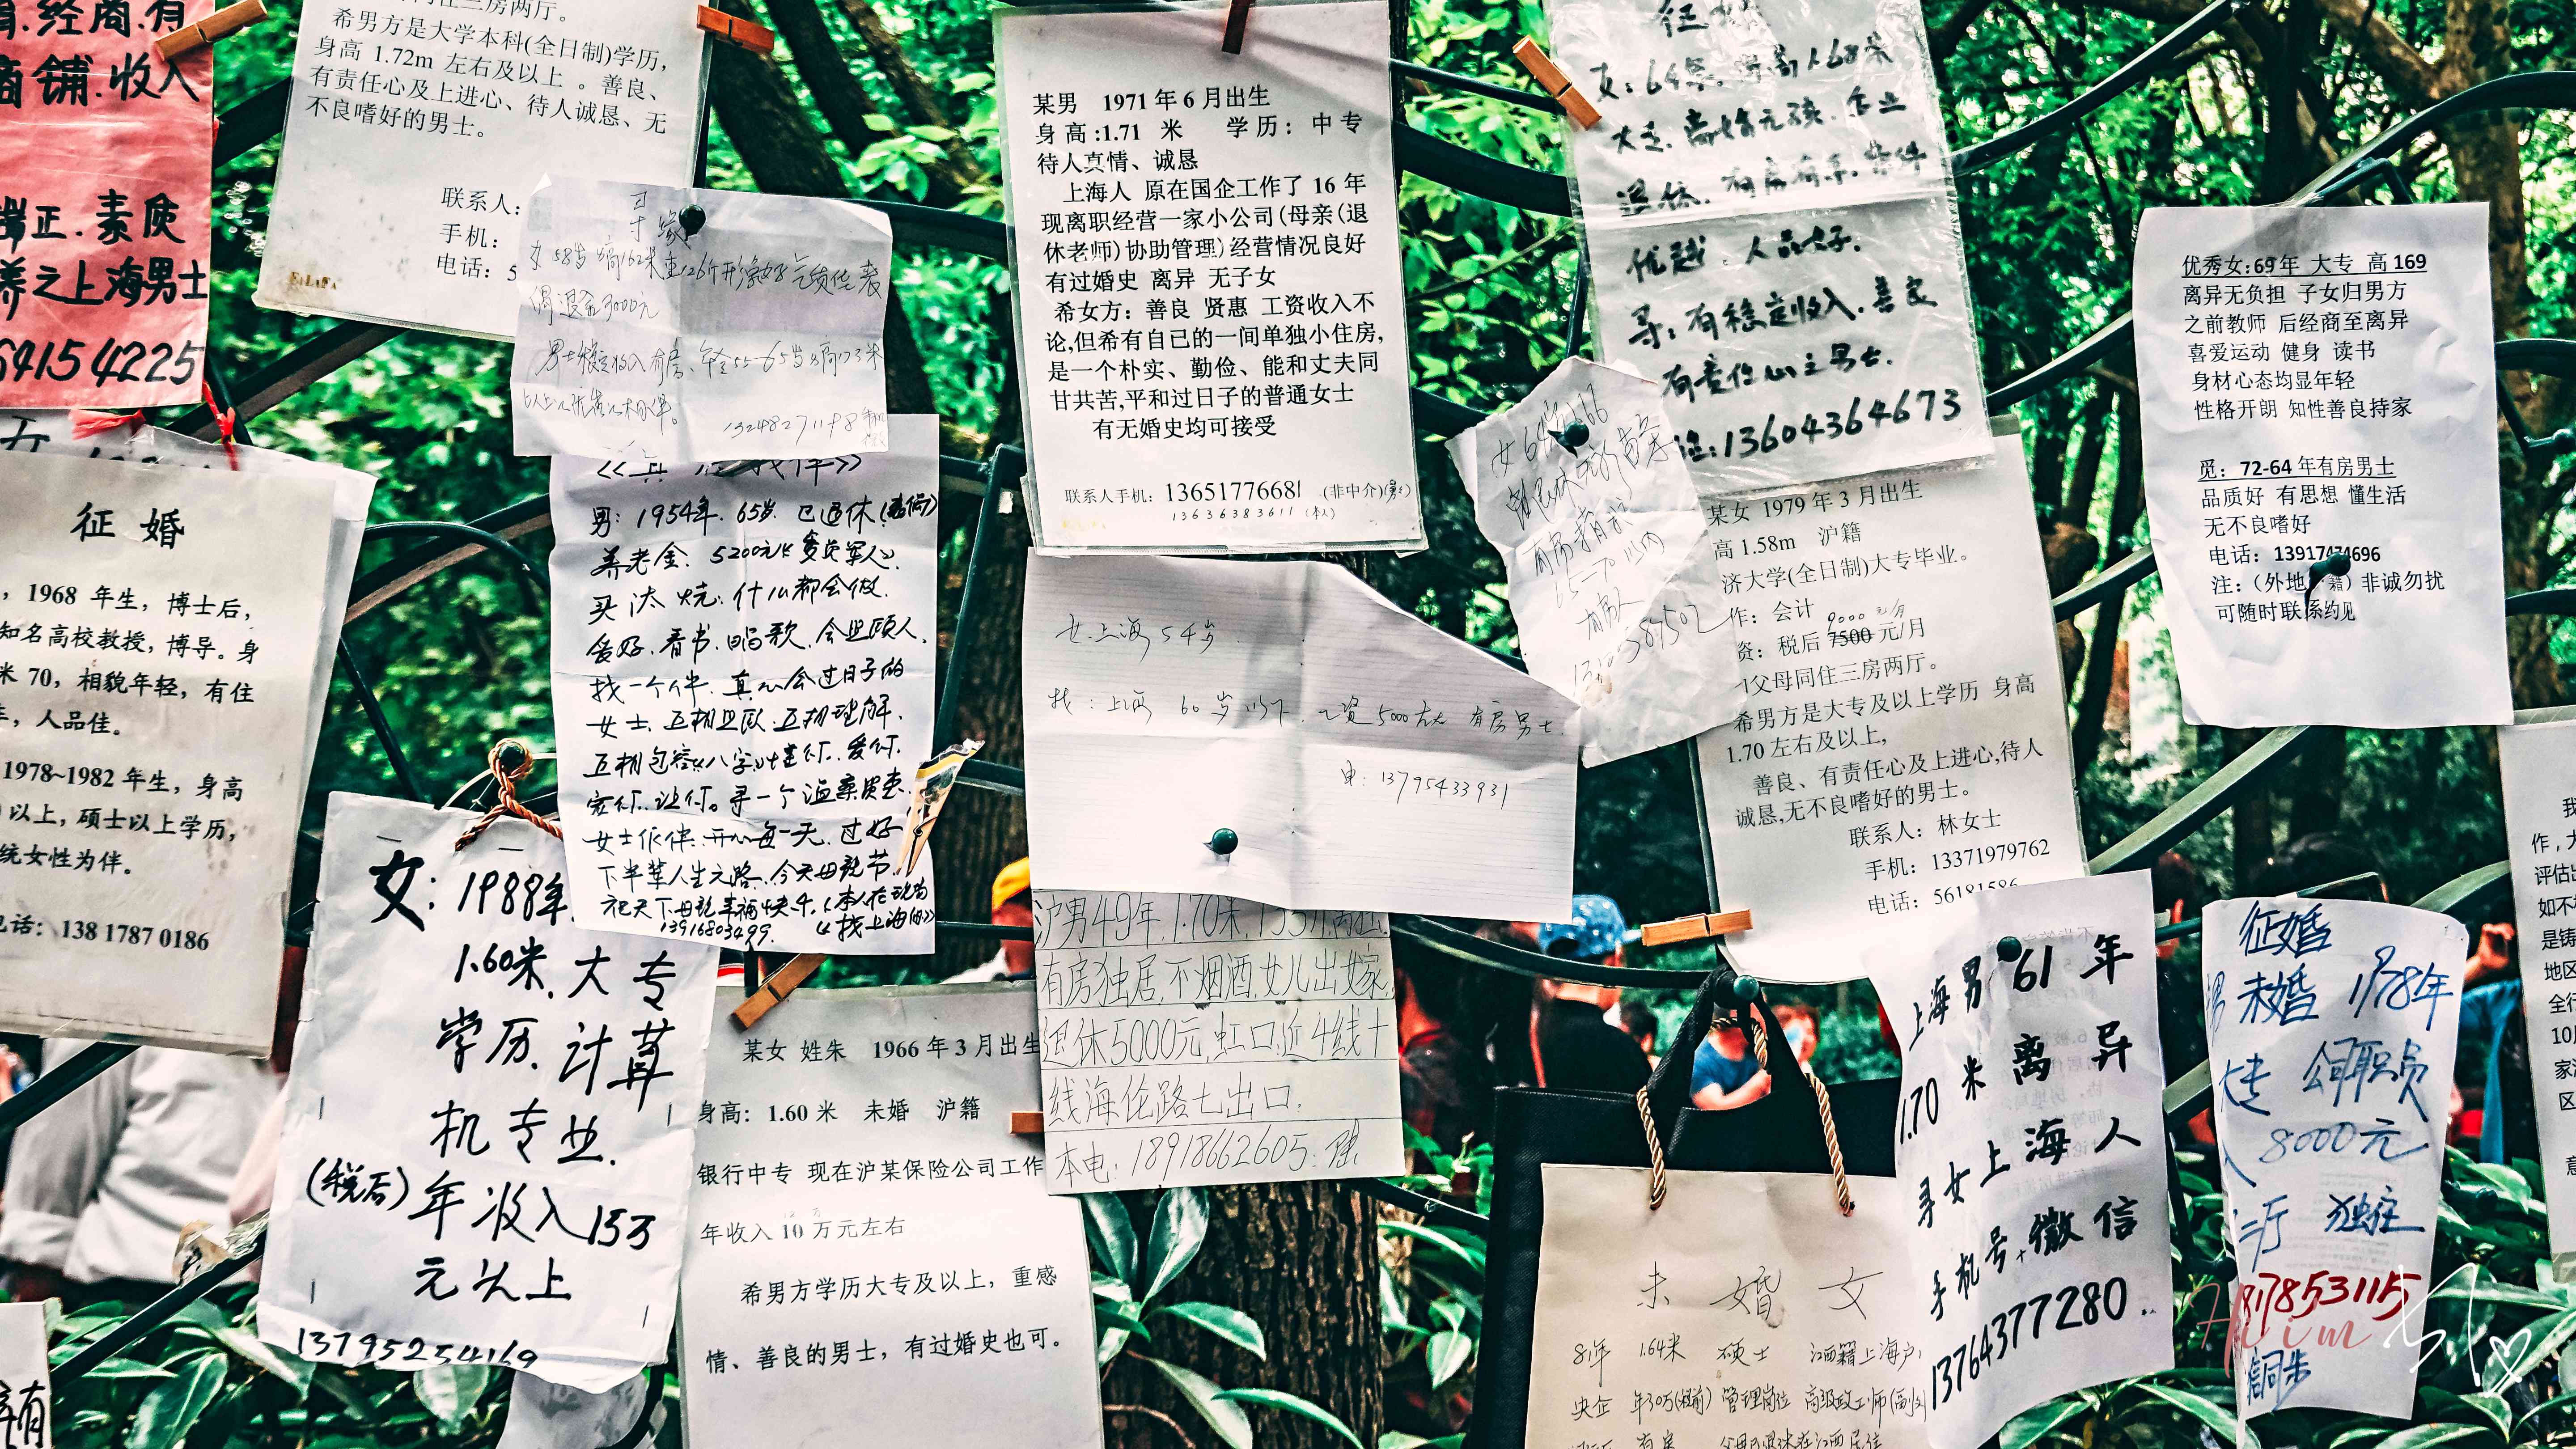 经商.有
商铺.收入
端正.素质
养之上海男士
64154225
征 婚
，1968 年生，博士后，
知名高校教授，博导。身
米 70，相貌年轻，有住
，人品佳。
1978~1982 年生，身高
以上，硕士以上学历，
统女性为伴。
电话：138 1787 0186
同住三房两厅。
希男方是大学本科(全日制)学历，
身高 1.72m 左右及以上 。善良、
有责任心及上进心、待人诚恳、无
不良嗜好的男士。
联系人：
手机：
电话：5
寻缘
女 58岁 高162米重126斤形象好气质佳 丧
偶退金3000元
男士稳定收入有房、年令55-65岁以高173米
13248271198
男：1954年. 65岁. 已退休
养老金. 5200元
买 汰 烧. 什么都会做.
爱好. 看书. 唱歌. 会照顾人.
找一个伴. 真心会过日子的
女士. 互相照顾. 互相理解.
互相包容
女士作伴. 开心每一天. 过好
下半辈人生之路. 今天母亲节.
祝天下母亲幸福快乐.
13916803499. 《找上海的》
女：1988年.
1.60米. 大专
学历. 计算
机专业.
(税后) 年收入15万
元以上
13795254169
某女 姓朱 1966 年 3 月出生
身高：1.60 米 未婚 沪籍
银行中专 现在沪某保险公司工作
年收入 10 万元左右
希男方学历大专及以上，重感
情、善良的男士，有过婚史也可。
某男 1971 年 6 月出生
身 高 :1.71 米 学 历 ：中 专
待人真情、诚恳
上海人 原在国企工作了 16 年
现离职经营一家小公司(母亲(退
休老师)协助管理)经营情况良好
有过婚史 离异 无子女
希女方：善良 贤惠 工资收入不
论,但希有自己的一间单独小住房,
是一个朴实、勤俭、能和丈夫同
甘共苦,平和过日子的普通女士
有无婚史均可接受
联系人手机：13651776681 (非中介)
13636383611 (本人)
女.上海 54岁
找：上海 60岁以下. 工资5000左右 有房男士.
电：13795433931
沪男49年.1.70米.135斤.离独.
有房独居.不烟酒.女儿出嫁.
退休5000元.虹口.近4线十
线海伦路七出口.
本电：18918662605.
女：64年. 身高1.68米
大专. 离婚无孩. 企业
退休. 有房有车. 条件
优越. 人品好.
寻：有稳定收入. 善良
有责任心之男士.
13604364673
65-70以内
某女 1979 年 3 月出生
高 1.58m 沪籍
济大学(全日制)大专毕业。
作：会计 9000 元/月
资：税后 7500 元/月
父母同住三房两厅。
希男方是大专及以上学历 身高
1.70 左右及以上,
善良、有责任心及上进心,待人
诚恳,无不良嗜好的男士。
联系人：林女士
手机：13371979762
电话：56181586
未 婚 女
81年 1.64米 硕士 江西籍上海户
央企 年30万(税前) 管理岗位 高级政工师(副
有房 父母已退休在江西居住
上海男 61 年
1.70 米 离 异
寻女上海人
手机号+微信
13764377280
优秀女:69年 大专 高169
离异无负担 子女归男方
之前教师 后经商至离异
喜爱运动 健身 读书
身材心态均显年轻
性格开朗 知性善良持家
觅：72-64年有房男士
品质好 有思想 懂生活
无不良嗜好
电话：13917474696
注：（外地 籍）非诚勿扰
可随时联系约见
征婚
男 未婚 1978年
大专 公司职员
8000元
二厅 独住
817853115
作，大
评估出
如不
是铸
地区
全行
10
家
区